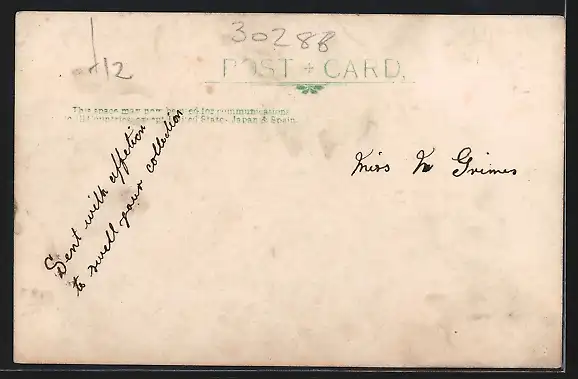 30288
12
POST CARD.
This space may now be used for communications
to all countries except United States, Japan & Spain.
Sent with affetion
to swell your collection
Miss M Grimes